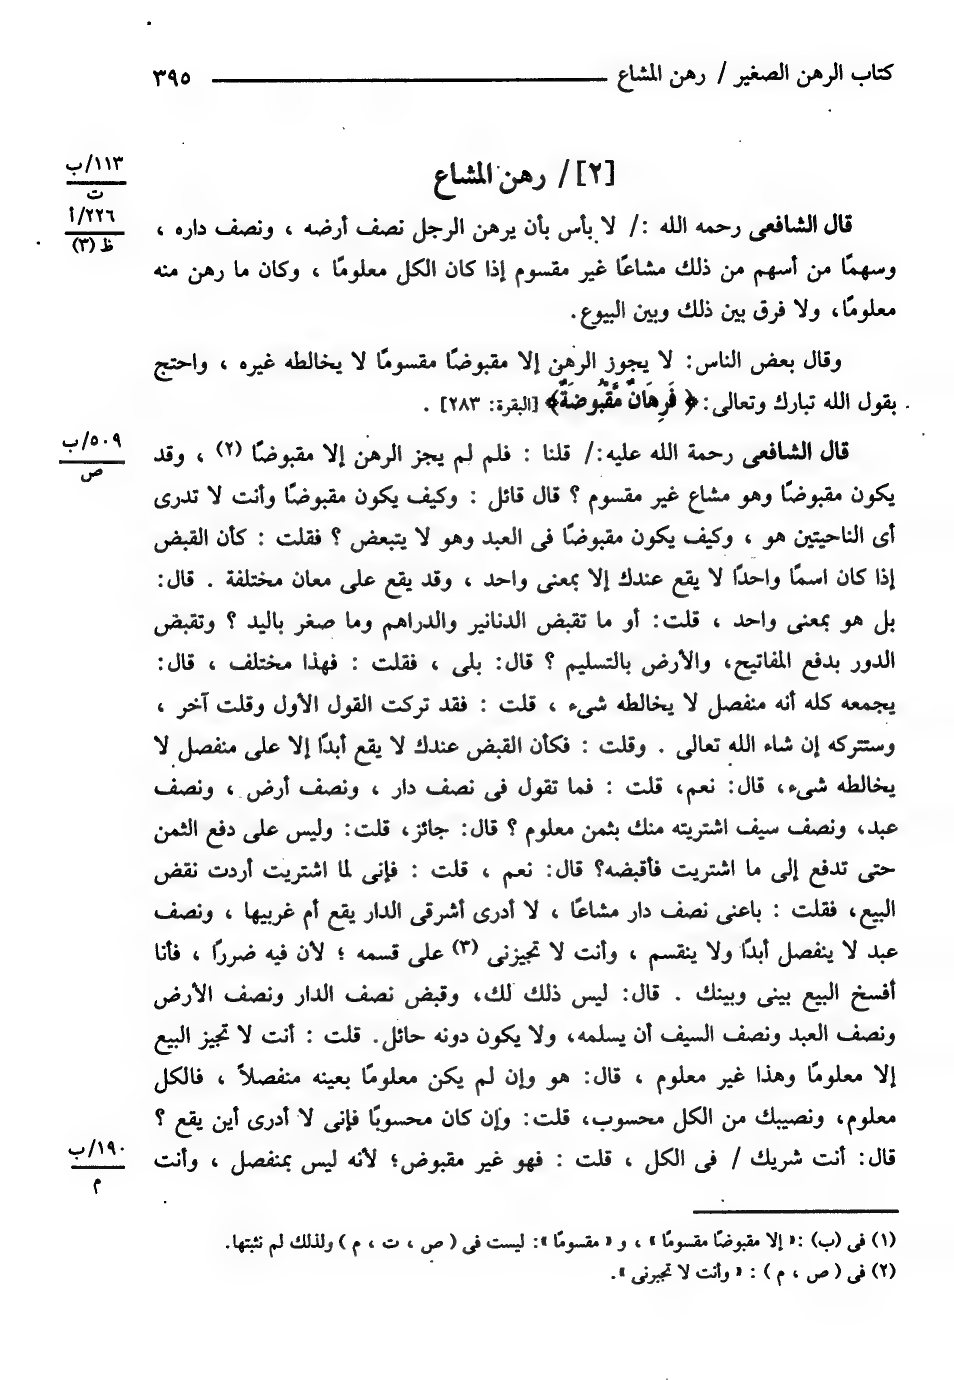 كتاب الرهن الصغير / رهن المشاع ٣٩٥
[٢] / رهن المشاع
١١٣/ب
ت
قال الشافعى رحمه الله :/ لا بأس بأن يرهن الرجل نصف أرضه ، ونصف داره ،
٢٢٦/أ
ظ (٣)
وسهمًا من أسهم من ذلك مشاعًا غير مقسوم إذا كان الكل معلومًا ، وكان ما رهن منه
معلومًا، ولا فرق بين ذلك وبين البيوع.
وقال بعض الناس: لا يجوز الرهن إلا مقبوضًا مقسومًا لا يخالطه غيره ، واحتج
بقول الله تبارك وتعالى: ﴿ فَرِهَانٌ مَّقْبُوضَةٌ ﴾ [البقرة: ٢٨٣] .
قال الشافعى رحمة الله عليه:/ قلنا : فلم لم يجز الرهن إلا مقبوضًا (٢) ، وقد
٥٠٩/ب
ص
يكون مقبوضًا وهو مشاع غير مقسوم ؟ قال قائل : وكيف يكون مقبوضًا وأنت لا تدرى
أى الناحيتين هو ، وكيف يكون مقبوضًا فى العبد وهو لا يتبعض ؟ فقلت : كأن القبض
إذا كان اسمًا واحدًا لا يقع عندك إلا بمعنى واحد ، وقد يقع على معان مختلفة . قال:
بل هو بمعنى واحد ، قلت: أو ما تقبض الدنانير والدراهم وما صغر باليد ؟ وتقبض
الدور بدفع المفاتيح، والأرض بالتسليم ؟ قال: بلى ، فقلت : فهذا مختلف ، قال:
يجمعه كله أنه منفصل لا يخالطه شىء ، قلت : فقد تركت القول الأول وقلت آخر ،
وستتركه إن شاء الله تعالى . وقلت : فكأن القبض عندك لا يقع أبدًا إلا على منفصل لا
يخالطه شىء، قال: نعم، قلت : فما تقول فى نصف دار ، ونصف أرض ، ونصف
عبد، ونصف سيف اشتريته منك بثمن معلوم ؟ قال: جائز، قلت: وليس على دفع الثمن
حتى تدفع إلى ما اشتريت فأقبضه؟ قال: نعم ، قلت : فإنى لما اشتريت أردت نقض
البيع، فقلت : باعنى نصف دار مشاعًا ، لا أدرى أشرقى الدار يقع أم غربيها ، ونصف
عبد لا ينفصل أبدًا ولا ينقسم ، وأنت لا تجيزنى (٣) على قسمه ؛ لأن فيه ضررًا ، فأنا
أفسخ البيع بينى وبينك . قال: ليس ذلك لك، وقبض نصف الدار ونصف الأرض
ونصف العبد ونصف السيف أن يسلمه، ولا يكون دونه حائل. قلت : أنت لا تجيز البيع
إلا معلومًا وهذا غير معلوم ، قال: هو وإن لم يكن معلومًا بعينه منفصلاً ، فالكل
معلوم، ونصيبك من الكل محسوب، قلت: وإن كان محسوبًا فإنى لا أدرى أين يقع ؟
قال: أنت شريك / فى الكل ، قلت : فهو غير مقبوض؛ لأنه ليس بمنفصل ، وأنت
١٩٠/ب
م
(١) فى (ب) :« إلا مقبوضًا مقسومًا » ، و « مقسومًا »: ليست فى ( ص ، ت ، م ) ولذلك لم نثبتها.
(٢) فى ( ص ، م ) : « وأنت لا تجبرنى ».